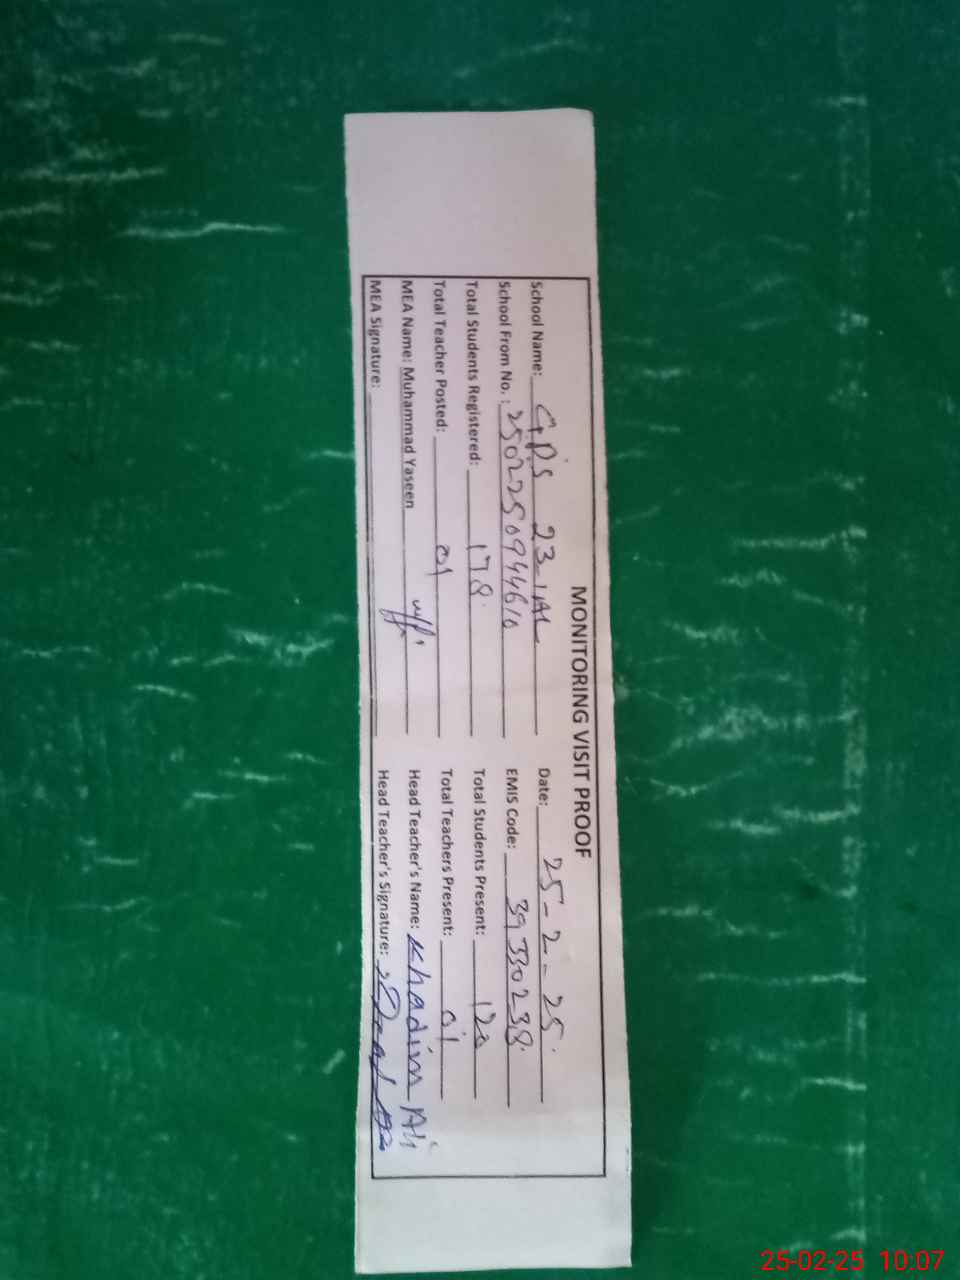 MONITORING VISIT PROOF
School Name: GPS 23-1AL Date: 25-2-25
School From No.: 2502250944610 EMIS Code: 39330238
Total Students Registered: 178 Total Students Present: 120
Total Teacher Posted: 01 Total Teachers Present: 01
MEA Name: Muhammad Yaseen Head Teacher's Name: Khadim Ali
MEA Signature: Head Teacher's Signature:
25-02-25 10:07